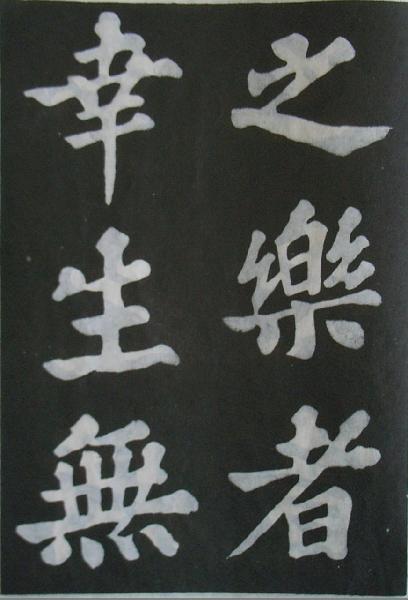 之樂者
幸生無